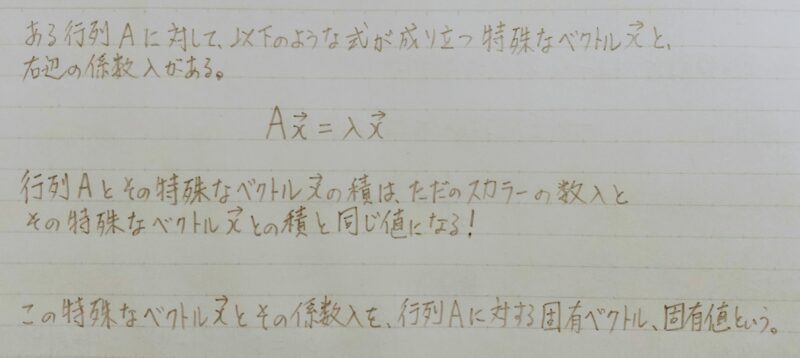 ある行列Aに対して、以下のような式が成り立つ特殊なベクトルx⃗と、
右辺の係数λがある。
Ax⃗=λx⃗
行列Aとその特殊なベクトルx⃗の積は、ただのスカラーの数λと
その特殊なベクトルx⃗との積と同じ値になる!
この特殊なベクトルx⃗とその係数λを、行列Aに対する固有ベクトル、固有値という。